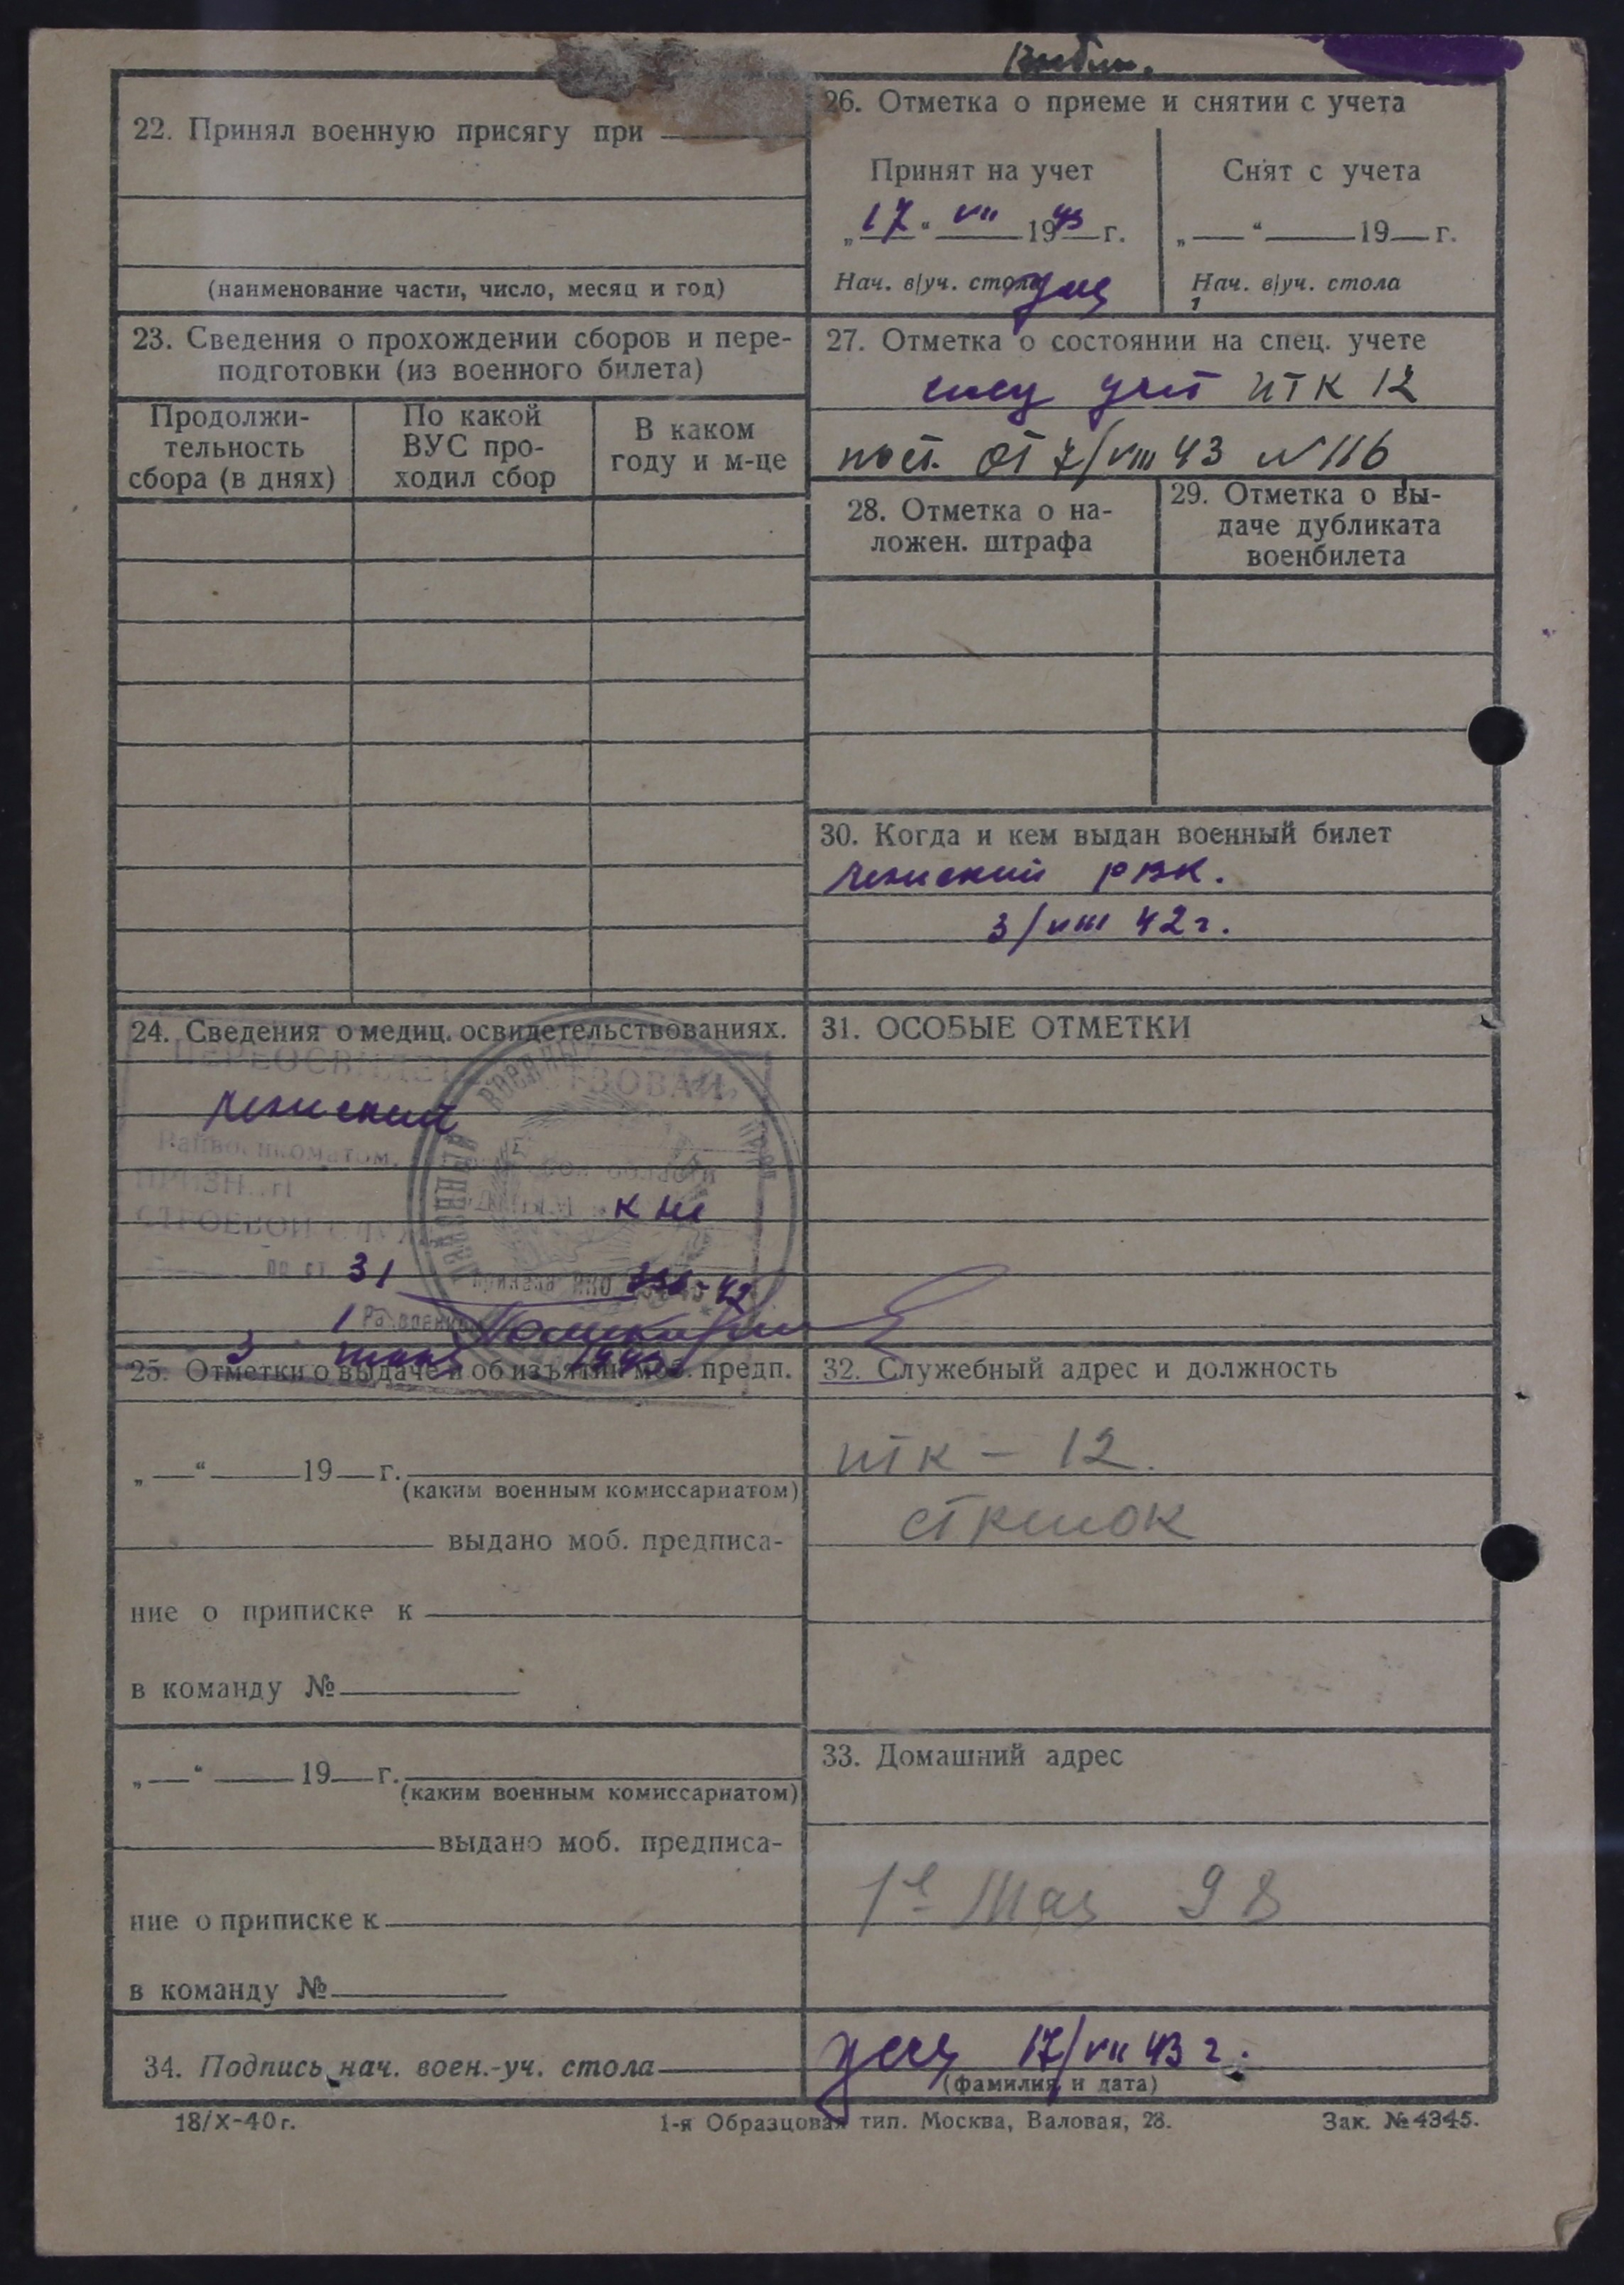 22. Принял военную присягу при
(наименование части, число, месяц и год)
23. Сведения о прохождении сборов и пере-
подготовки (из военного билета)
Продолжи-
тельность
сбора (в днях)
По какой
ВУС про-
ходил сбор
В каком
году и м-це
24. Сведения о медиц. освидетельствованиях.
ПЕРЕОСВИДЕТЕЛЬСТВОВАН
Райвоенкоматом,
области
СТРОЕВОЙ
по ст. 31
приказа НКО 42
1
3 1943
25. Отметки о выдаче и об изъятии моб. предп.
„ “ 19 г.
(каким военным комиссариатом)
выдано моб. предписа-
ние о приписке к
в команду №
„ “ 19 г.
(каким военным комиссариатом)
выдано моб. предписа-
ние о приписке к
в команду №
34. Подпись нач. воен.-уч. стола
26. Отметка о приеме и снятии с учета
Принят на учет
„17“ VII 1943 г.
Нач. в/уч. стола
Снят с учета
„ “ 19 г.
Нач. в/уч. стола
27. Отметка о состоянии на спец. учете
спец учет ИТК 12
пост. от 7/VIII 43 N 116
28. Отметка о на-
ложен. штрафа
29. Отметка о вы-
даче дубликата
военбилета
30. Когда и кем выдан военный билет
РВК.
3/VIII 42 г.
31. ОСОБЫЕ ОТМЕТКИ
32. Служебный адрес и должность
ИТК - 12.
стрелок
33. Домашний адрес
1е Мая 98
17/VII 43 г.
(фамилия и дата)
18/X-40 г.
1-я Образцовая тип. Москва, Валовая, 28.
Зак. № 4345.